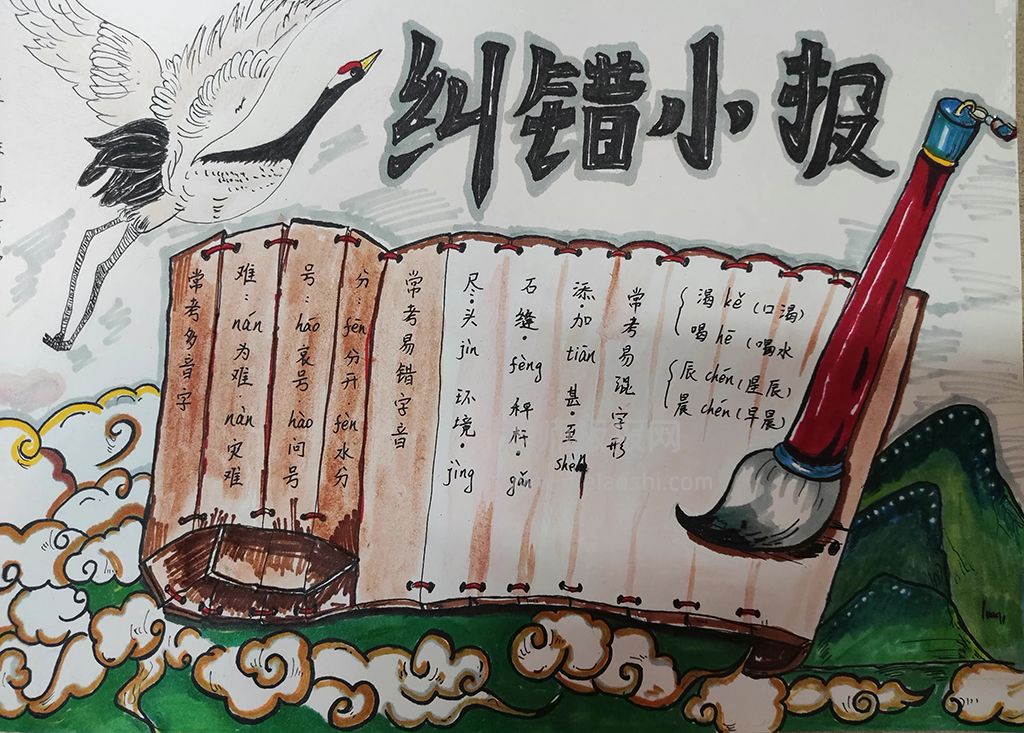 纠错小报
常考多音字
难：nán为难·nàn灾难
号：háo哀号 hào问号
分：fēn分开 fèn水分
常考易错字音
尽·头 jìn 环境·jìng
石缝·fèng 秤杆·gǎn
添加 tiān 甚·至 shèn
常考易混字形
渴 kě（口渴）
喝 hē（喝水
辰 chén（星辰）
晨 chén（早晨）